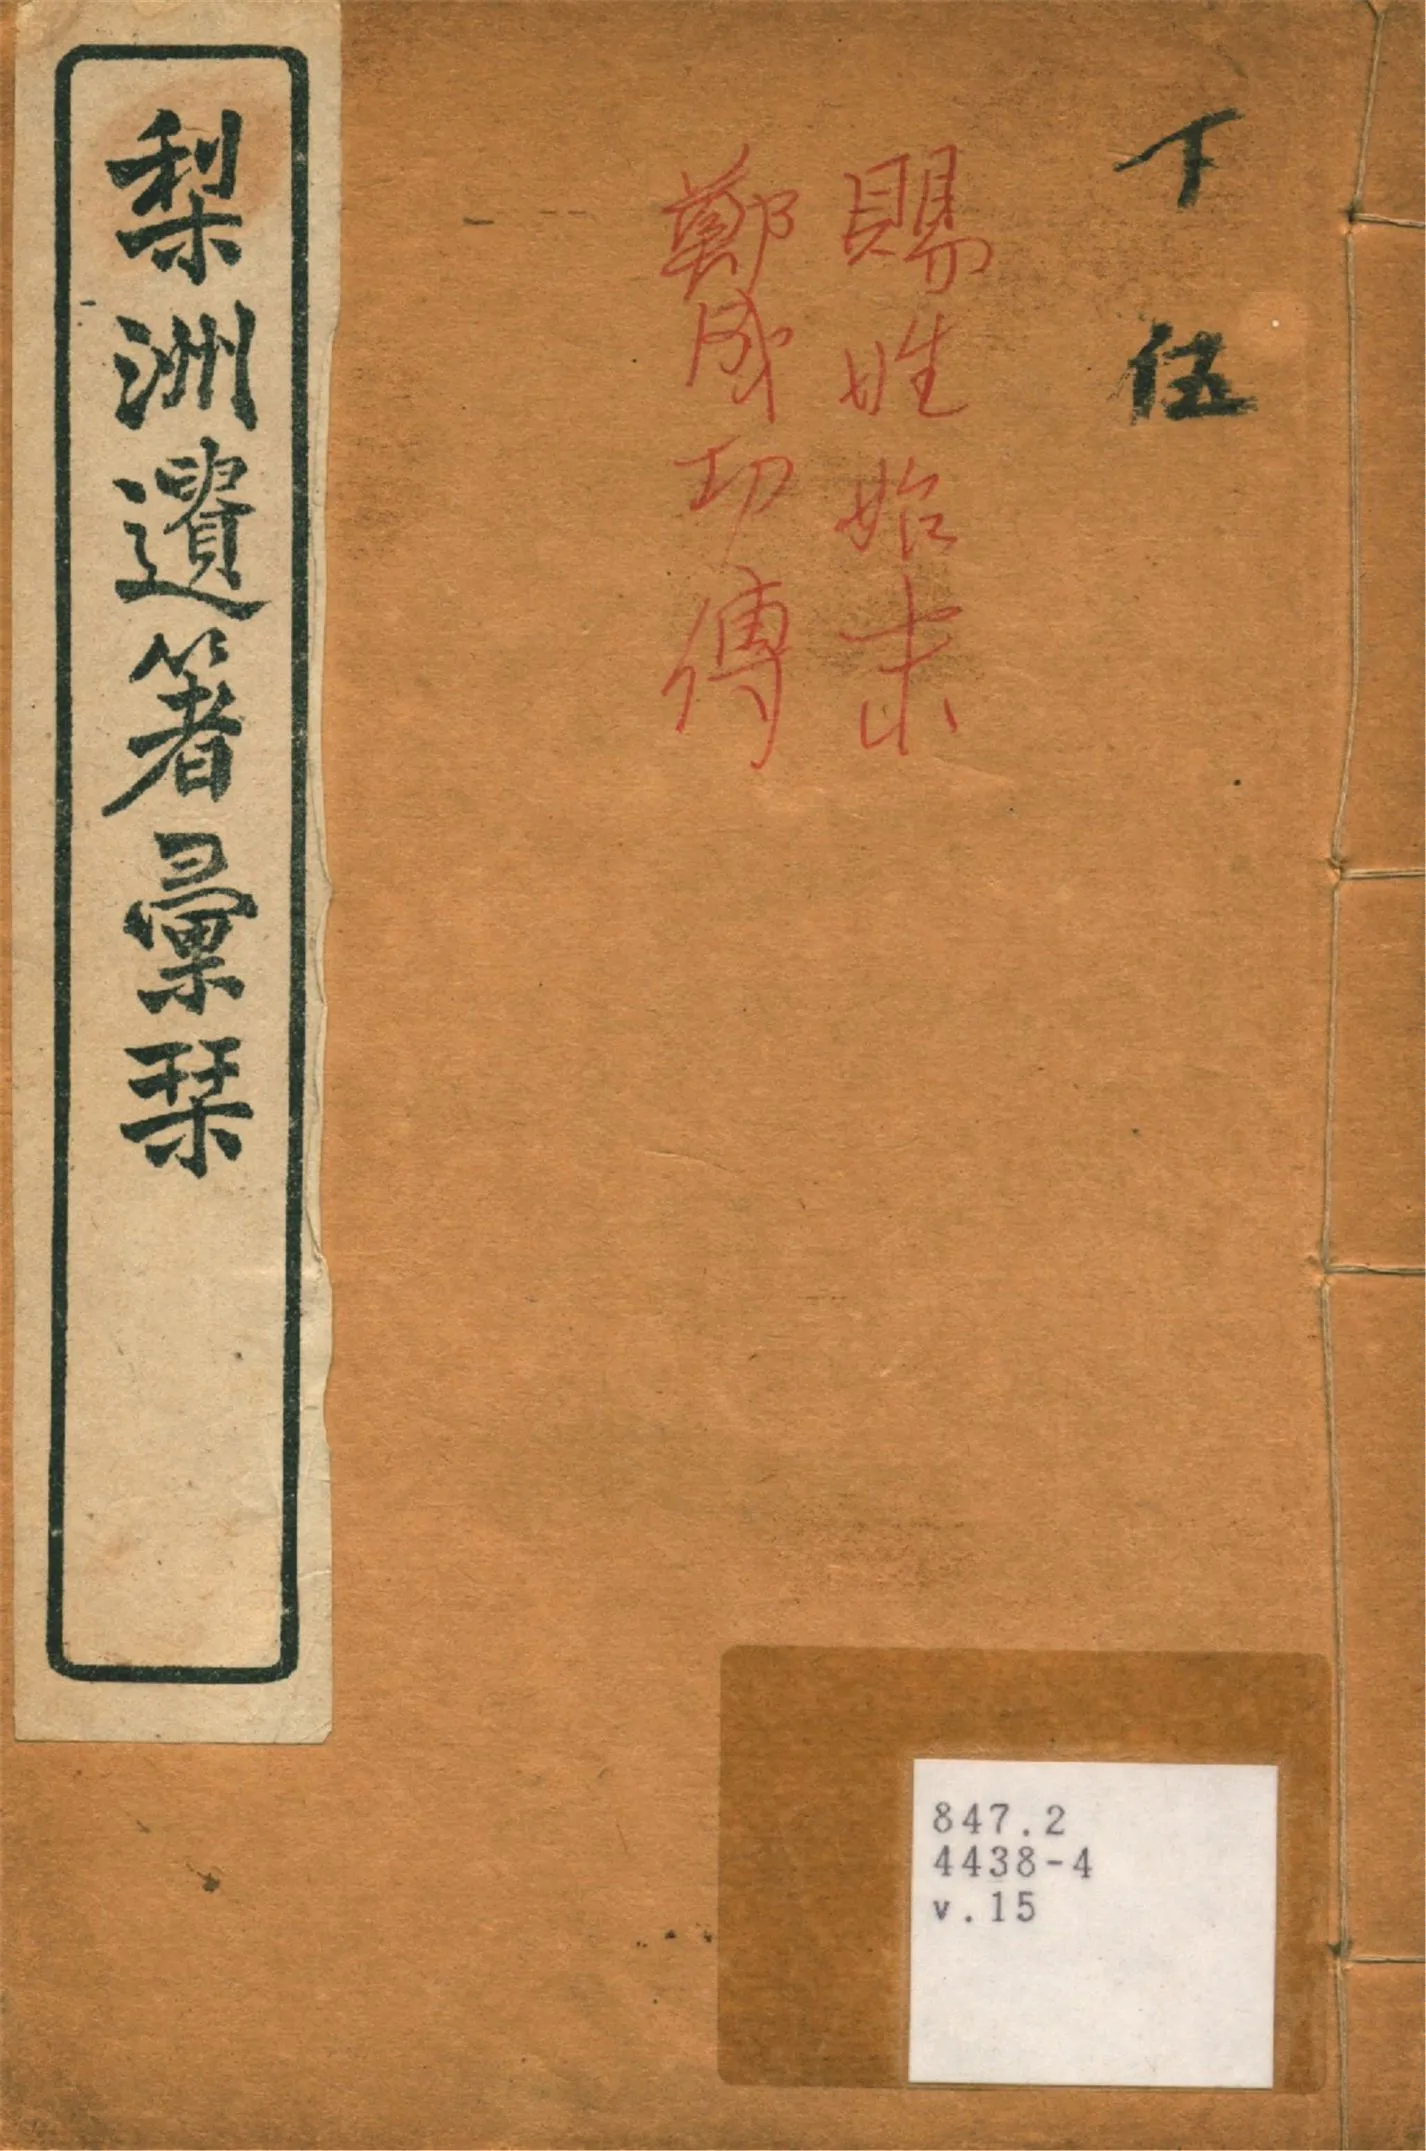 丁伍
賜姓始末
鄭成功傳
梨洲遺著彙栞
847.2
4438-4
v.15